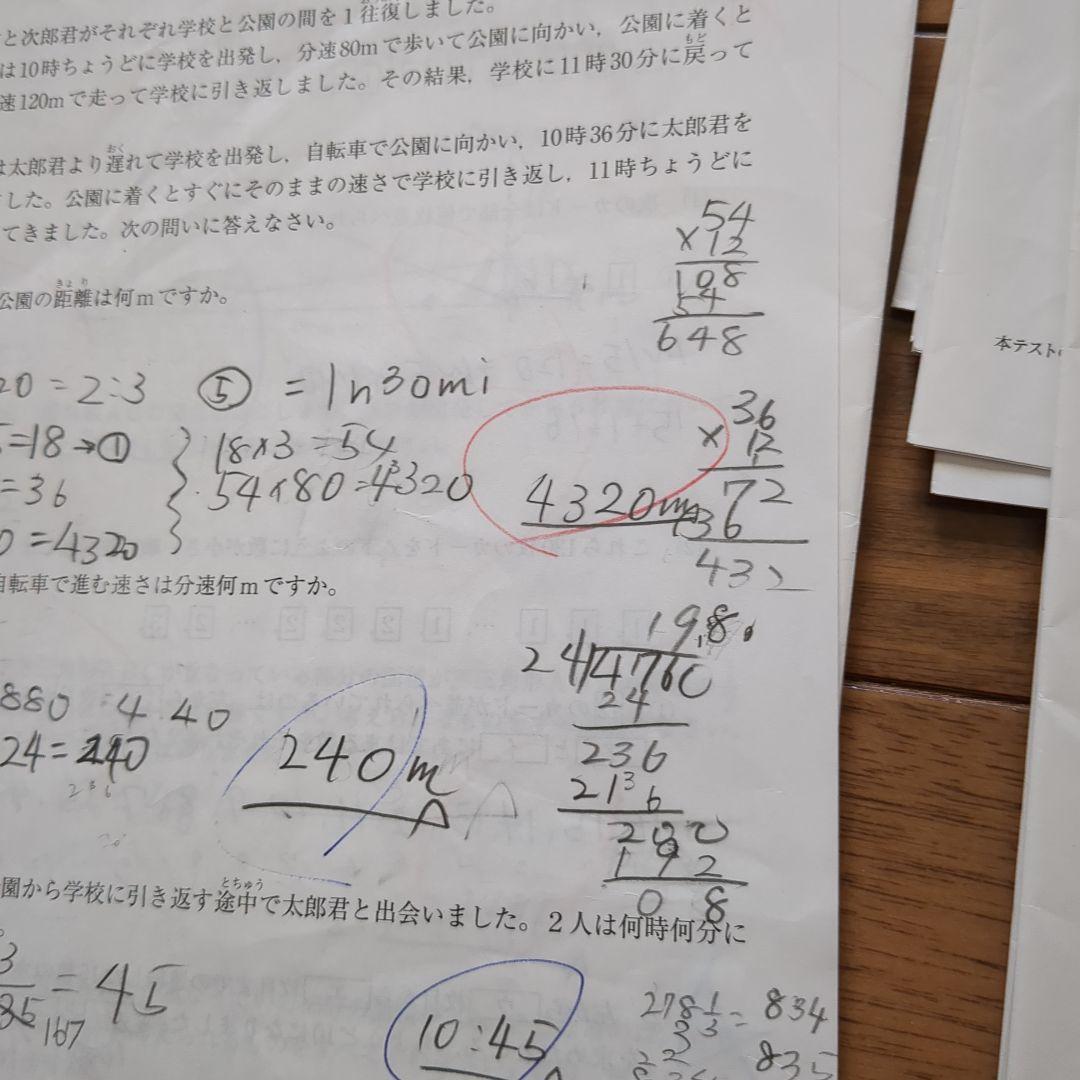 と次郎君がそれぞれ学校と公園の間を1往復しました。
は10時ちょうどに学校を出発し，分速80mで歩いて公園に向かい，公園に着くと
速120mで走って学校に引き返しました。その結果，学校に11時30分に戻って
は太郎君より遅れて学校を出発し，自転車で公園に向かい，10時36分に太郎君を
した。公園に着くとすぐにそのままの速さで学校に引き返し，11時ちょうどに
てきました。次の問いに答えなさい。
54
×12
108
54
648
公園の距離は何mですか。
本テスト
20=2:3 ⑤ =1h30mi
=18→① 18×3=54
=36 54×80=4320
0=4320
4320m
36
×12
72
36
432
自転車で進む速さは分速何mですか。
19.8
24)4760
24
236
216
200
192
08
880=4.40
24=240
236
240m
園から学校に引き返す途中で太郎君と出会いました。2人は何時何分に
3
=45
167
10:45
278 1/3=834
835